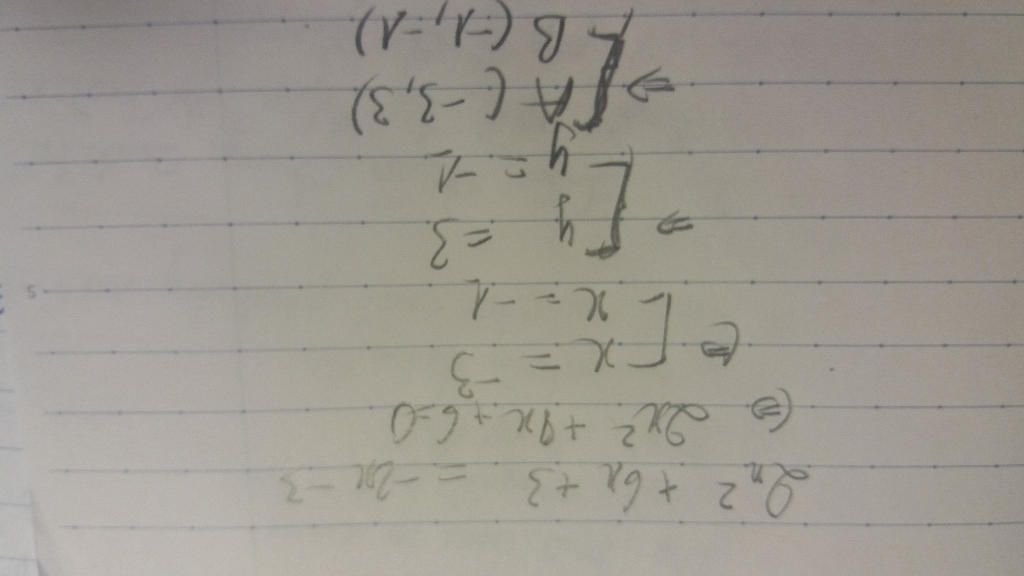 2x² + 6x + 3 = -2x - 3
⇔ 2x² + 8x + 6 = 0
⇔ [ x = -3
[ x = -1
⇒ [ y = 3
[ y = -1
⇒ [ A (-3, 3)
[ B (-1, -1)